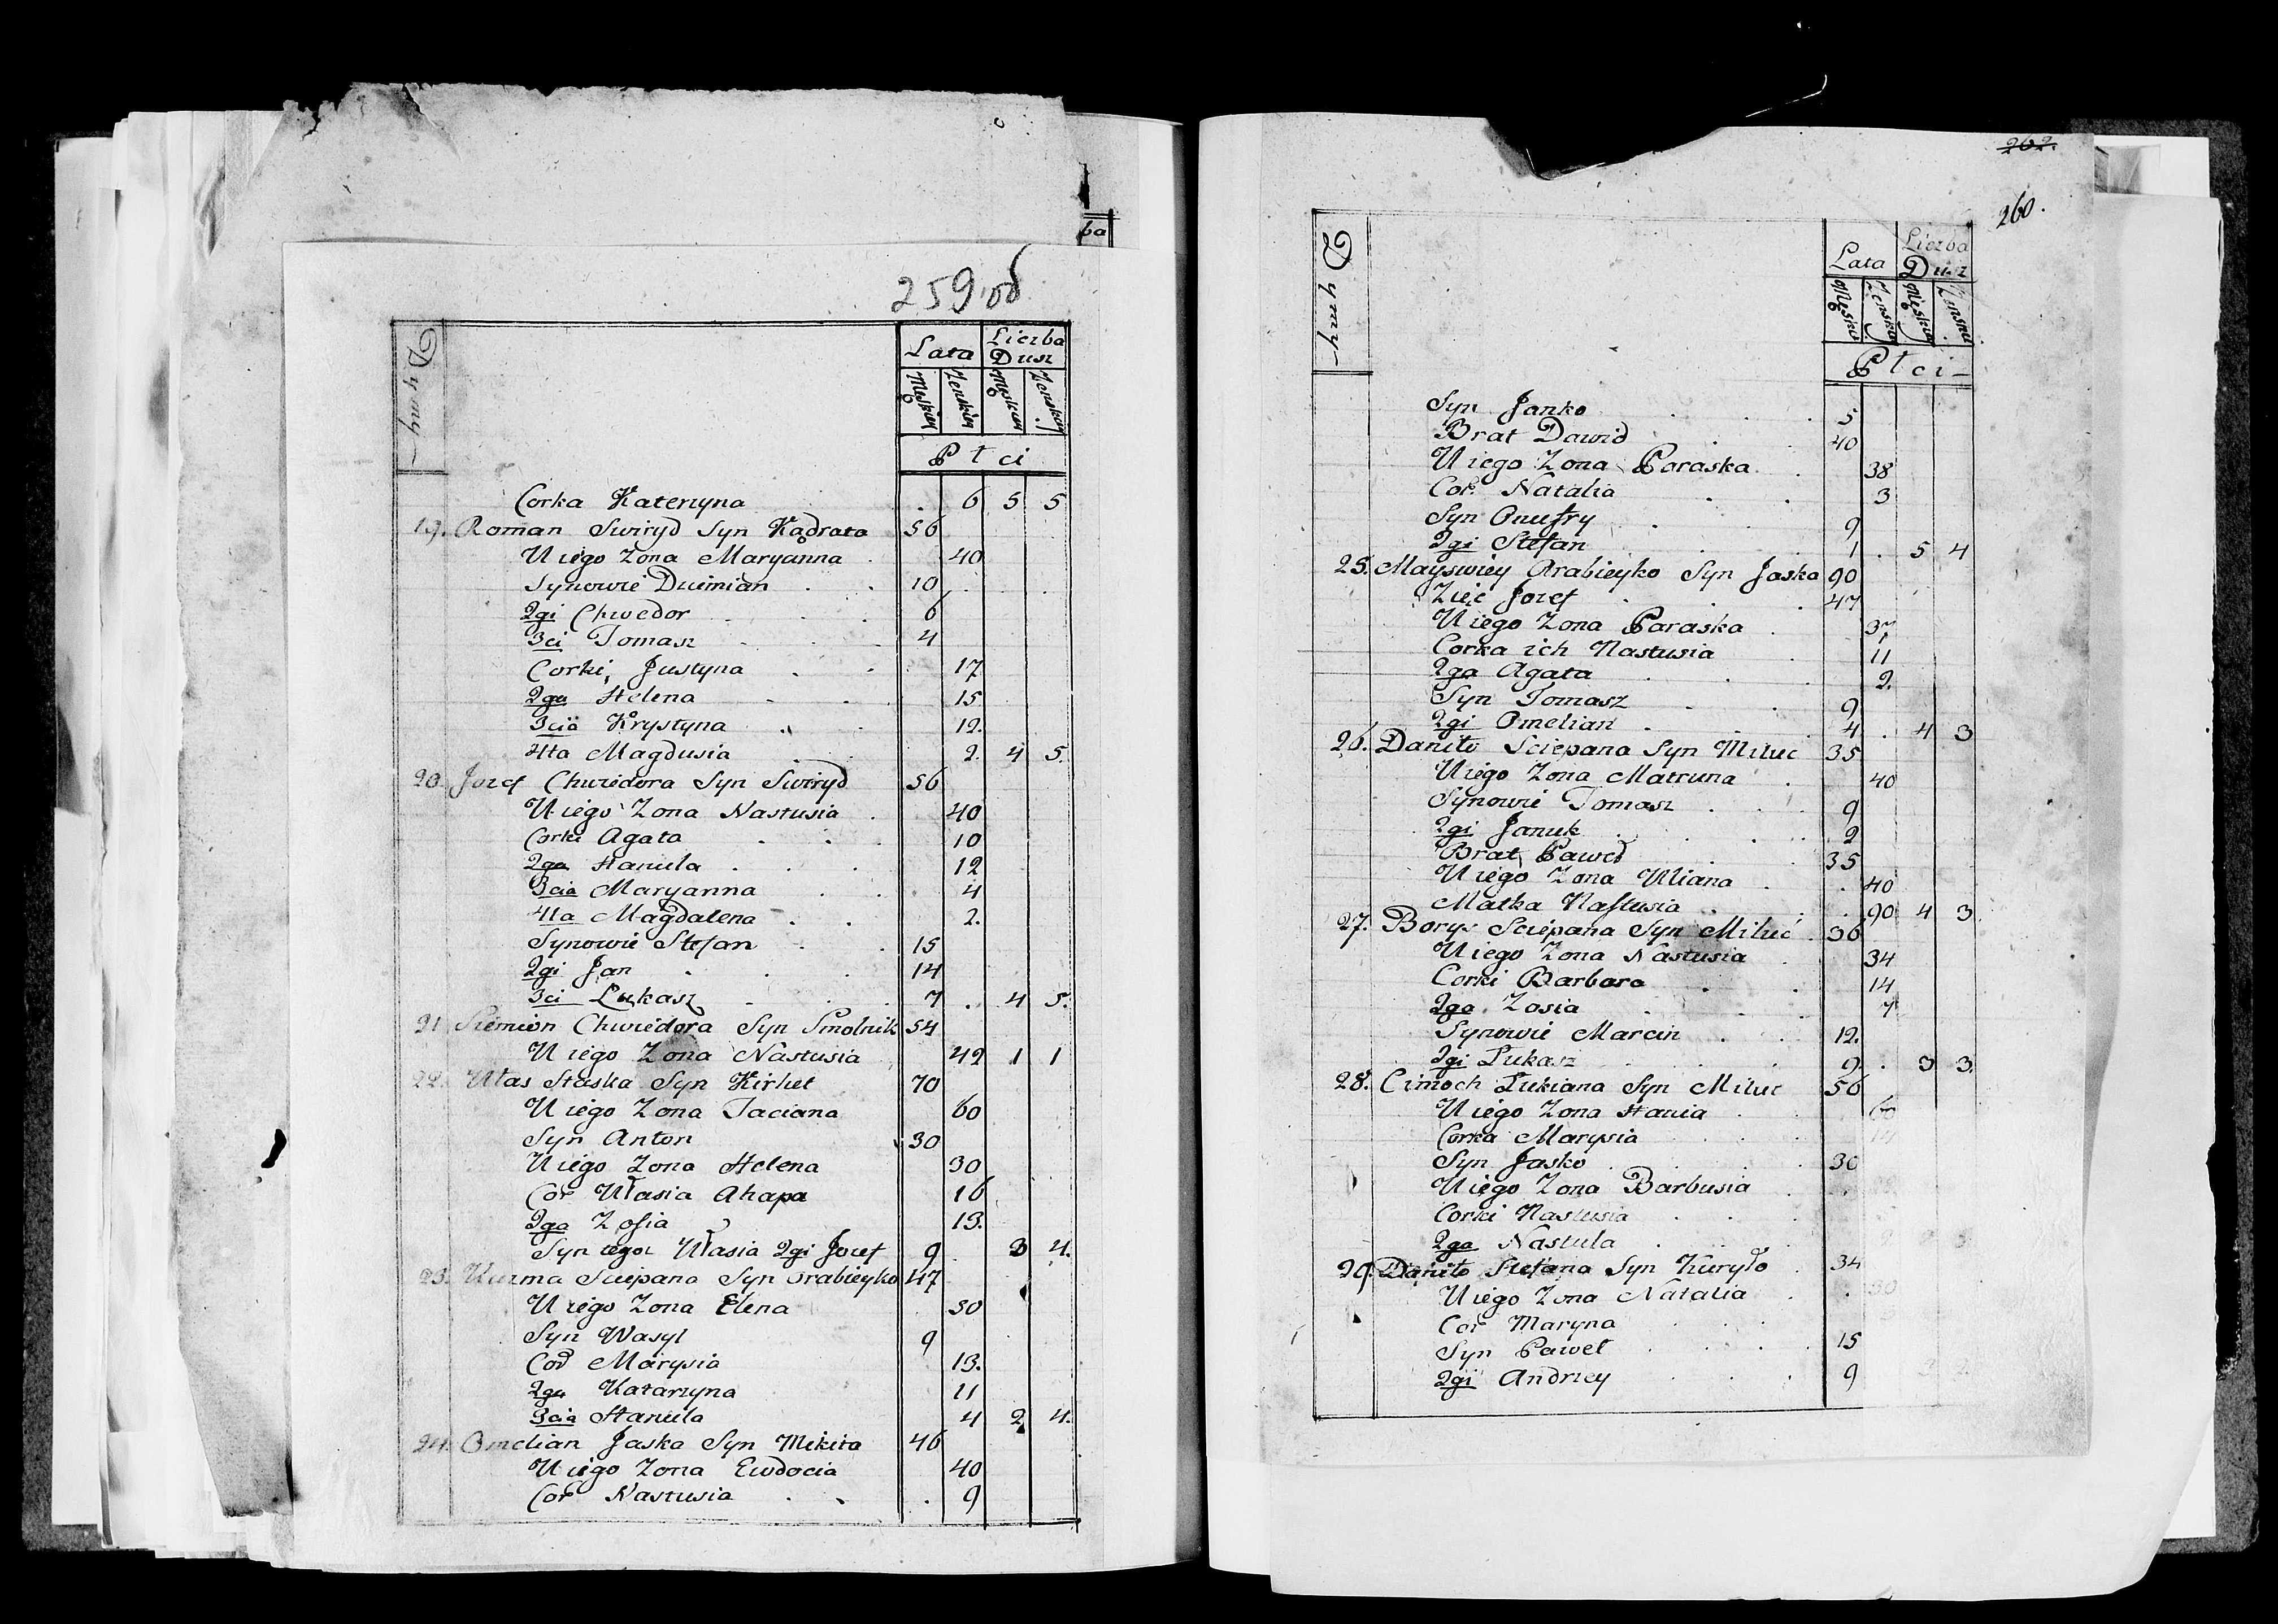 ba
259 об
Dymy
Lata
Liczba Dusz
Męskiey
Zenskiey
Męskiey
Zenskiey
Płci
Corka Katerzyna . 6 5 5
19. Roman Swiryd Syn Kądrata 56
U iego Zona Maryanna 40
Synowie Duimian 10
2gi Chwedor 6
3ci Tomasz 4
Corki, Justyna 17
2ga Helena 15
3cia Krystyna 12.
4ta Magdusia 2. 4 5.
20. Jozef Chwiedora Syn Swiryd 56
U iego Zona Nastusia 40
Corki Agata 10
2ga Hanula 12
3cia Maryanna 4
4ta Magdalena 2.
Synowie Stefan 15
2gi Jan 14
3ci Lukasz 7 . 4 5.
21 Siemion Chwiedora Syn Smolnik 54
U iego Zona Nastusia 42 1 1
22. Ułas Staska Syn Kirhel 70
U iego Zona Taciana 60
Syn Anton 30
U iego Zona Helena 30
Cor Ułasia Ahapa 16
2ga Zofia 13.
Syn tegoz Ułasia 2gi Jozef 9 3 4.
23. Kuzma Sciepana Syn Orabieyko 47
U iego Zona Elena 30
Syn Wasyl 9
Cor Marysia 13.
2ga Katarzyna 11
3cia Hanula 4 2 4.
24. Omelian Jaska Syn Mikita 46
U iego Zona Ewdocia 40
Cor Nastusia . 9
262.
260.
Dymy
Lata
Liczba Dusz
Męskiey
Zenskiey
Męskiey
Zenskiey
Płci
Syn Janko 5
Brat Dawid 40
U iego Zona Paraska 38
Cor. Natalia 3
Syn Onufry 9
2gi Stefan 1 . 5 4
25. Mayswiey Orabieyko Syn Jaska 90
Zięc Jozef 47
U iego Zona Paraska 37
Corka ich Nastusia 11
2ga Agata 2.
Syn Tomasz 9
2gi Omelian 4 . 4 3
26. Daniło Sciepana Syn Miluc 35
U iego Zona Matruna 40
Synowie Tomasz 9
2gi Januk 2
Brat Paweł 35
U iego Zona Uliana . 40
Matka Nastusia . 90 4 3
27. Borys Sciepana Syn Miluć 36
U iego Zona Nastusia 34
Corki Barbara 14
2ga Zosia 7
Synowie Marcin 12.
2gi Lukasz 9 . 3 3.
28. Cimoch Lukiana Syn Miluc 56
U iego Zona Hania 60
Corka Marysia 14
Syn Jasko 30
U iego Zona Barbusia
Corki Nastusia
2ga Nastula
29. Daniło Stefana Syn Kuryło 34
U iego Zona Natalia . 30
Cor Maryna
Syn Paweł 15
2gi Andrzey 9